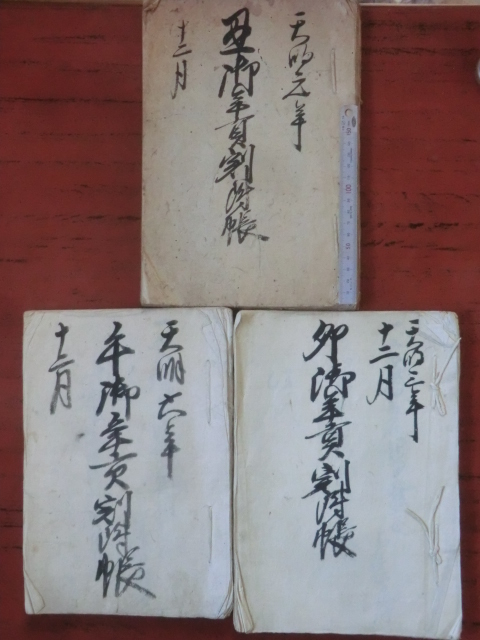 天明元年
丑御年貢割附帳
十二月
天明三年
十二月
卯御年貢割附帳
天明六年
午御年貢割附帳
十二月